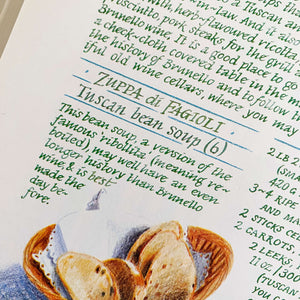 a Tuscan and
-in-law. And it also
with herb-flavoured ricotta,
prosciutto, pork steaks for the grill
Brunello wine. It is a good place to go
a check-cloth covered table in the
the history of Brunello and to follow h
ful old wine cellars, where you may
ZUPPA di FAGIOLI
Tuscan bean soup (6)
This bean soup, a version of the
famous 'ribollita' (meaning re-
boiled) may well have an even
longer history than Brunello
wine & is best
made the
day be-
fore.
2 LB
(SMA
420 G
3-4 RIPE
AND ME
2 STICKS CE
2 CARROTS,
2 LEEKS,
11 OZ / 300 G
(TUSCAN
YOU CA